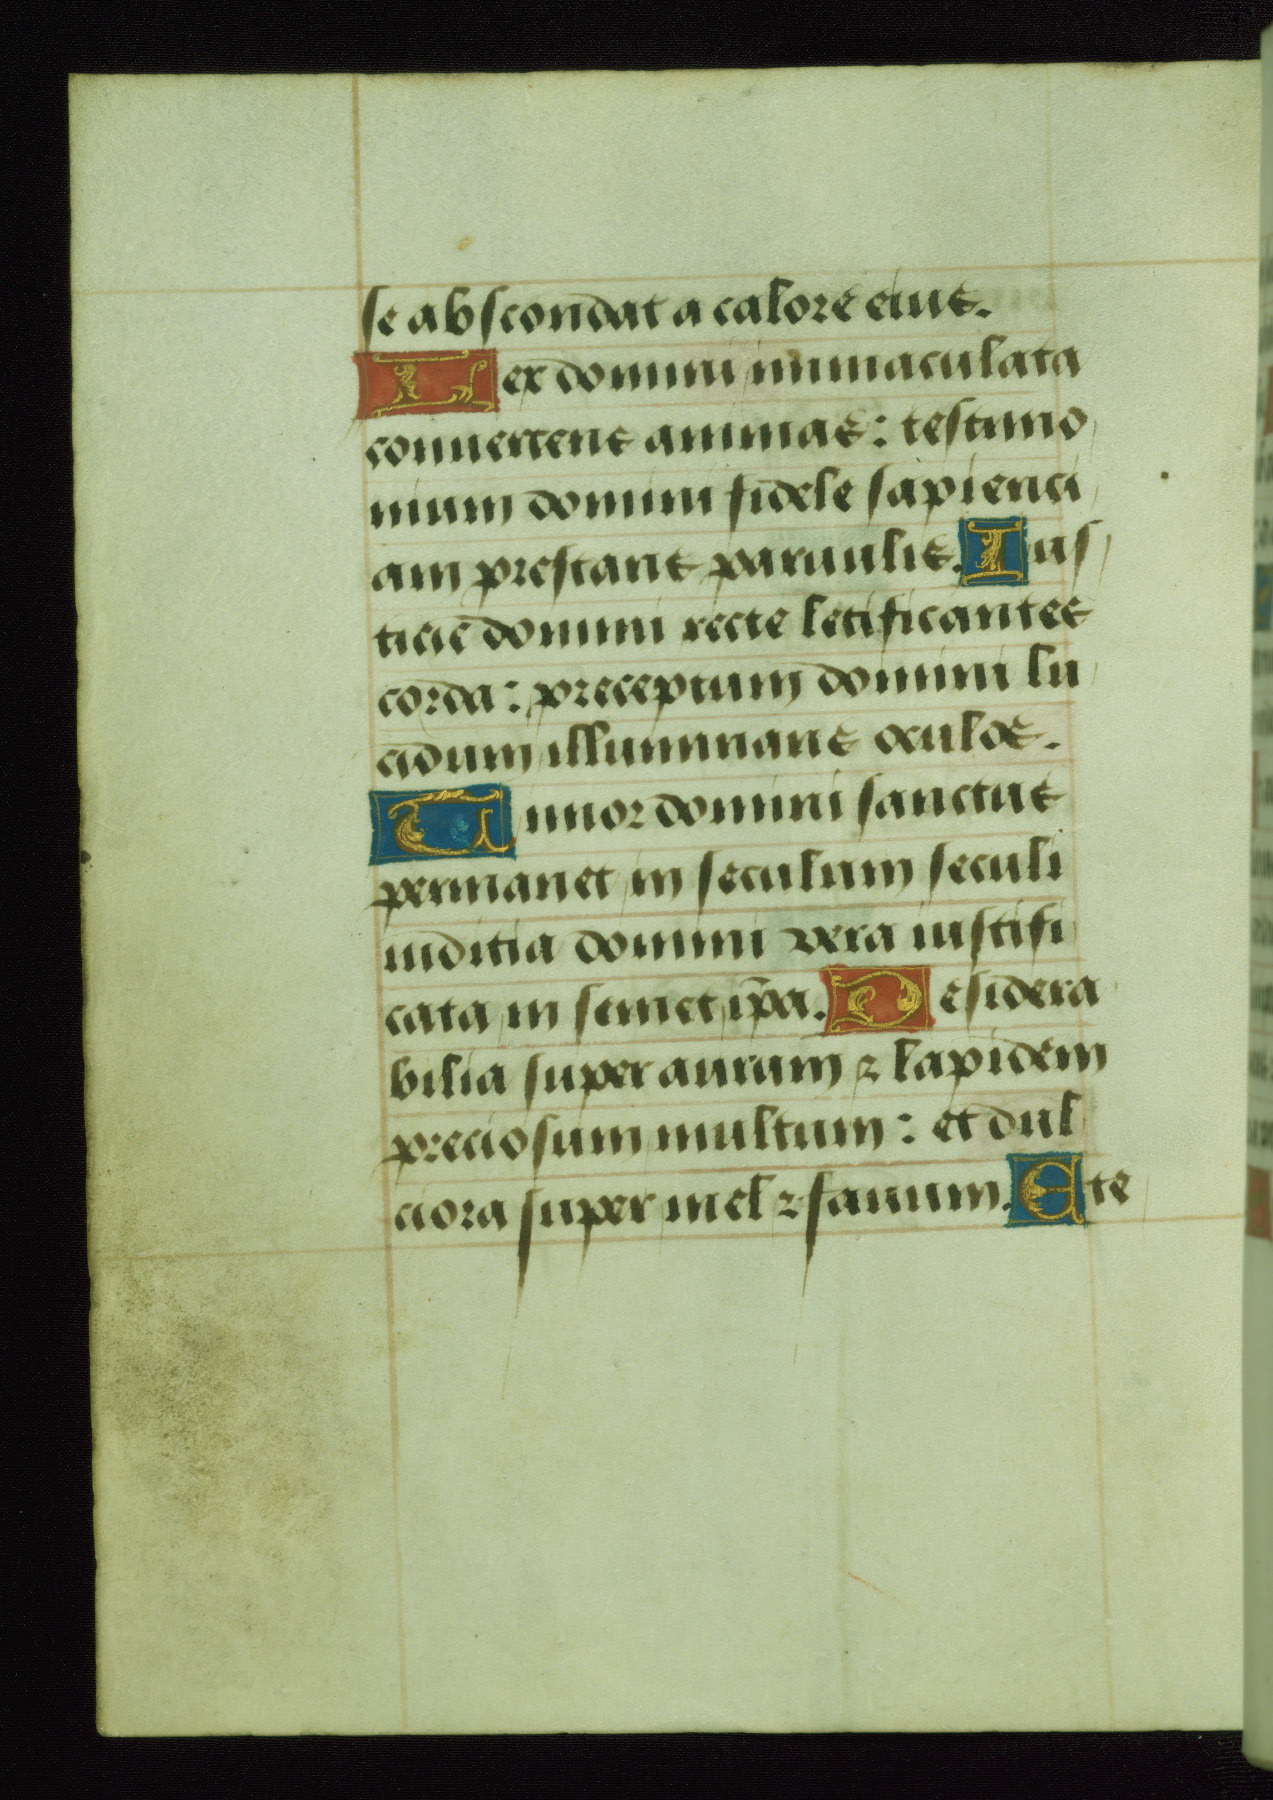 se abscondat a calore eius.
Lex domini immaculata
conuertens animas: testimo
nium domini fidele sapienci
am prestans paruulis. Ius
ticie domini recte letificantes
corda: preceptum domini lu
cidum illuminans oculos.
Timor domini sanctus
permanet in seculum seculi
iuditia domini vera iustifi
cata in semet ip̄a. Desidera
bilia super aurum ⁊ lapidem
preciosum multum: et dul
ciora super mel ⁊ fauum. Ete